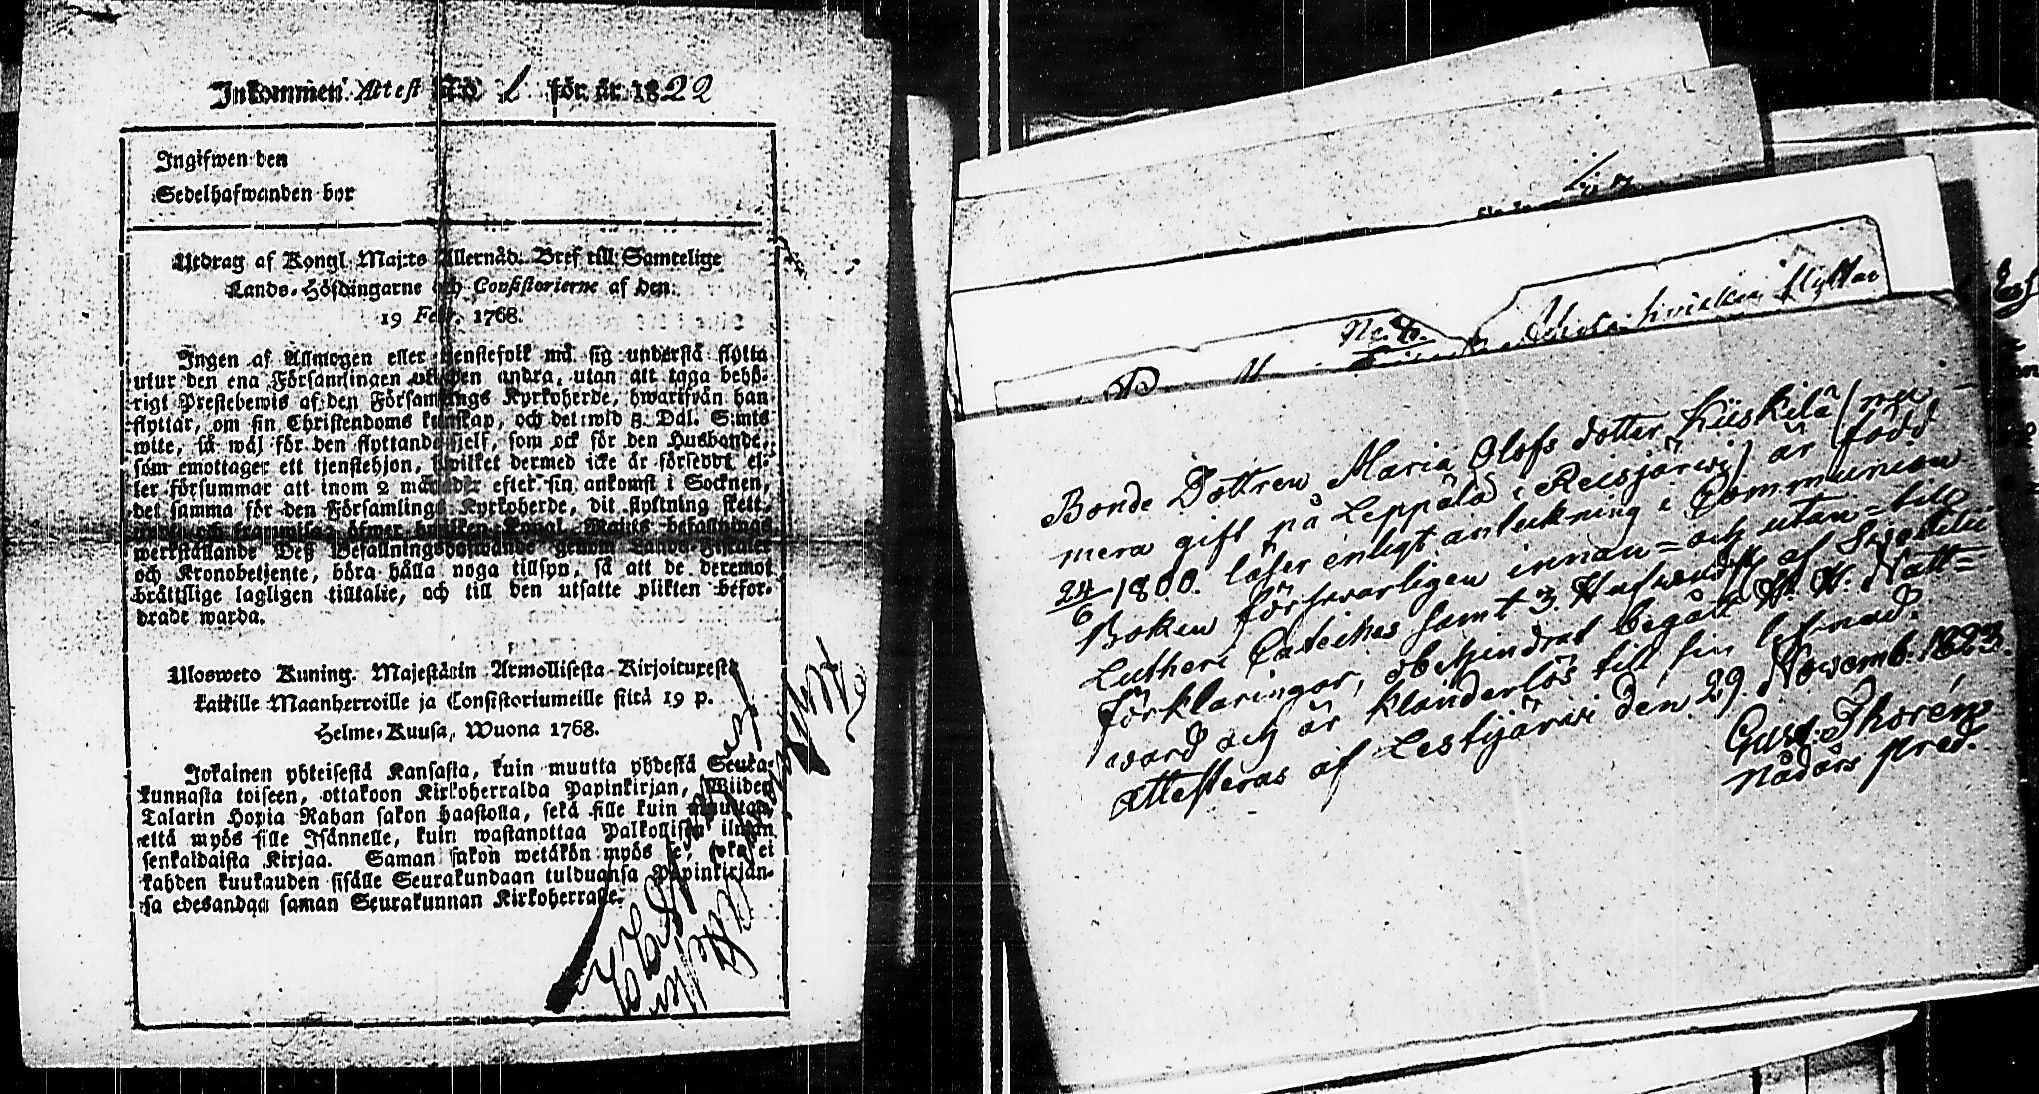 Inkommen Attest N:o 1 för år 1822
Ingifwen den
Sedelhafwanden bor
Utdrag af Kongl. Maj:ts Allernåd. Bref till Samtelige
Lands-Höfdingarne och Consistorierne af den
19 Febr. 1768.
Ingen af Allmogen eller tjenstefolk må sig understå flytta
utur den ena Församlingen uti den andra, utan att taga behö-
rigt Prestebewis af den Församlings Kyrkoherde, hwarifrån han
flyttar, om sin Christendoms kunskap, och det wid 5 Dal. S:mts
wite, så wäl för den flyttande sjelf, som ock för den Husbonde,
som emottager ett tjenstehjon, hwilket dermed icke är försedt el-
ler försummar att inom 2 månader efter sin ankomst i Socknen,
det samma för den Församlings Kyrkoherde, dit flyttning skett,
och framwisa; öfwer hwilken Kongl. Maj:ts befallnings
werkställande Deß Befallningshafwande genom Lands-Fiscaler
och Kronobetjente, böra hålla noga tillsyn, så att de deremot
brättslige lagligen tilltalte, och till den utsatte plikten befor-
drade warda.
Ulosweto Kuning. Majestätin Armollisesta Kirjoituxesta
kaikille Maanherroille ja Consistoriumeille siitä 19 p.
Helme-Kuusa, Wuona 1768.
Jokainen yhteisestä Kansasta, kuin muutta yhdestä Seura-
kunnasta toiseen, ottakoon Kirkoherralda Papinkirjan, Wiiden
Talarin Hopia Rahan sakon haastolla, sekä sille kuin muuttaa
että myös sille Isännelle, kuin wastanottaa Palkollisen ilman
senkaldaista Kirjaa. Saman sakon wetäkön myös se, joka ei
kahden kuukauden sisälle Seurakundaan tulduansa Papinkirjan-
sa edesandaa saman Seurakunnan Kirkoherralle.
No 8.
hvilken flyttar
Bonde Dottren Maria Olofs dotter Kiiskilä (nu-
mera gift på Leppälä i Reisjärwi) är född
24/6 1800. läser enligt anteckning i Communion
Boken försvarligen innan- och utan-till
Lutheri Cateches samt 3. Hufvudst. af Svebilii
förklaringar, obehindrat begått H. H. Natt-
ward och är klanderlös till sin lefnad.
Attesteras af Lestijärwi den 29 Novemb. 1823.
Gust. Thorén
nådårs pred.